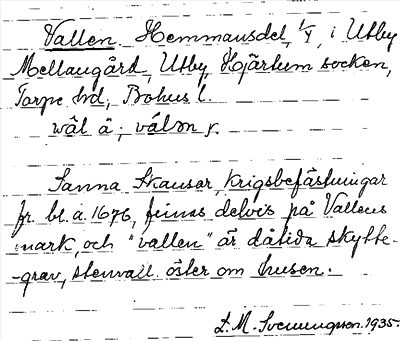 Vallen. Hemmansdel, 1/4, i Utby
Mellangård, Utby, Hjärtum socken,
Torpe hd, Bohus l.
Sanna Skansar, Krigsbefästningar
fr. bl. a. 1676, finnas delvis på Vallens
mark, och "vallen" är dåtida skytte-
-grav, stenvall öster om husen.
L. M. Svenungson. 1935.